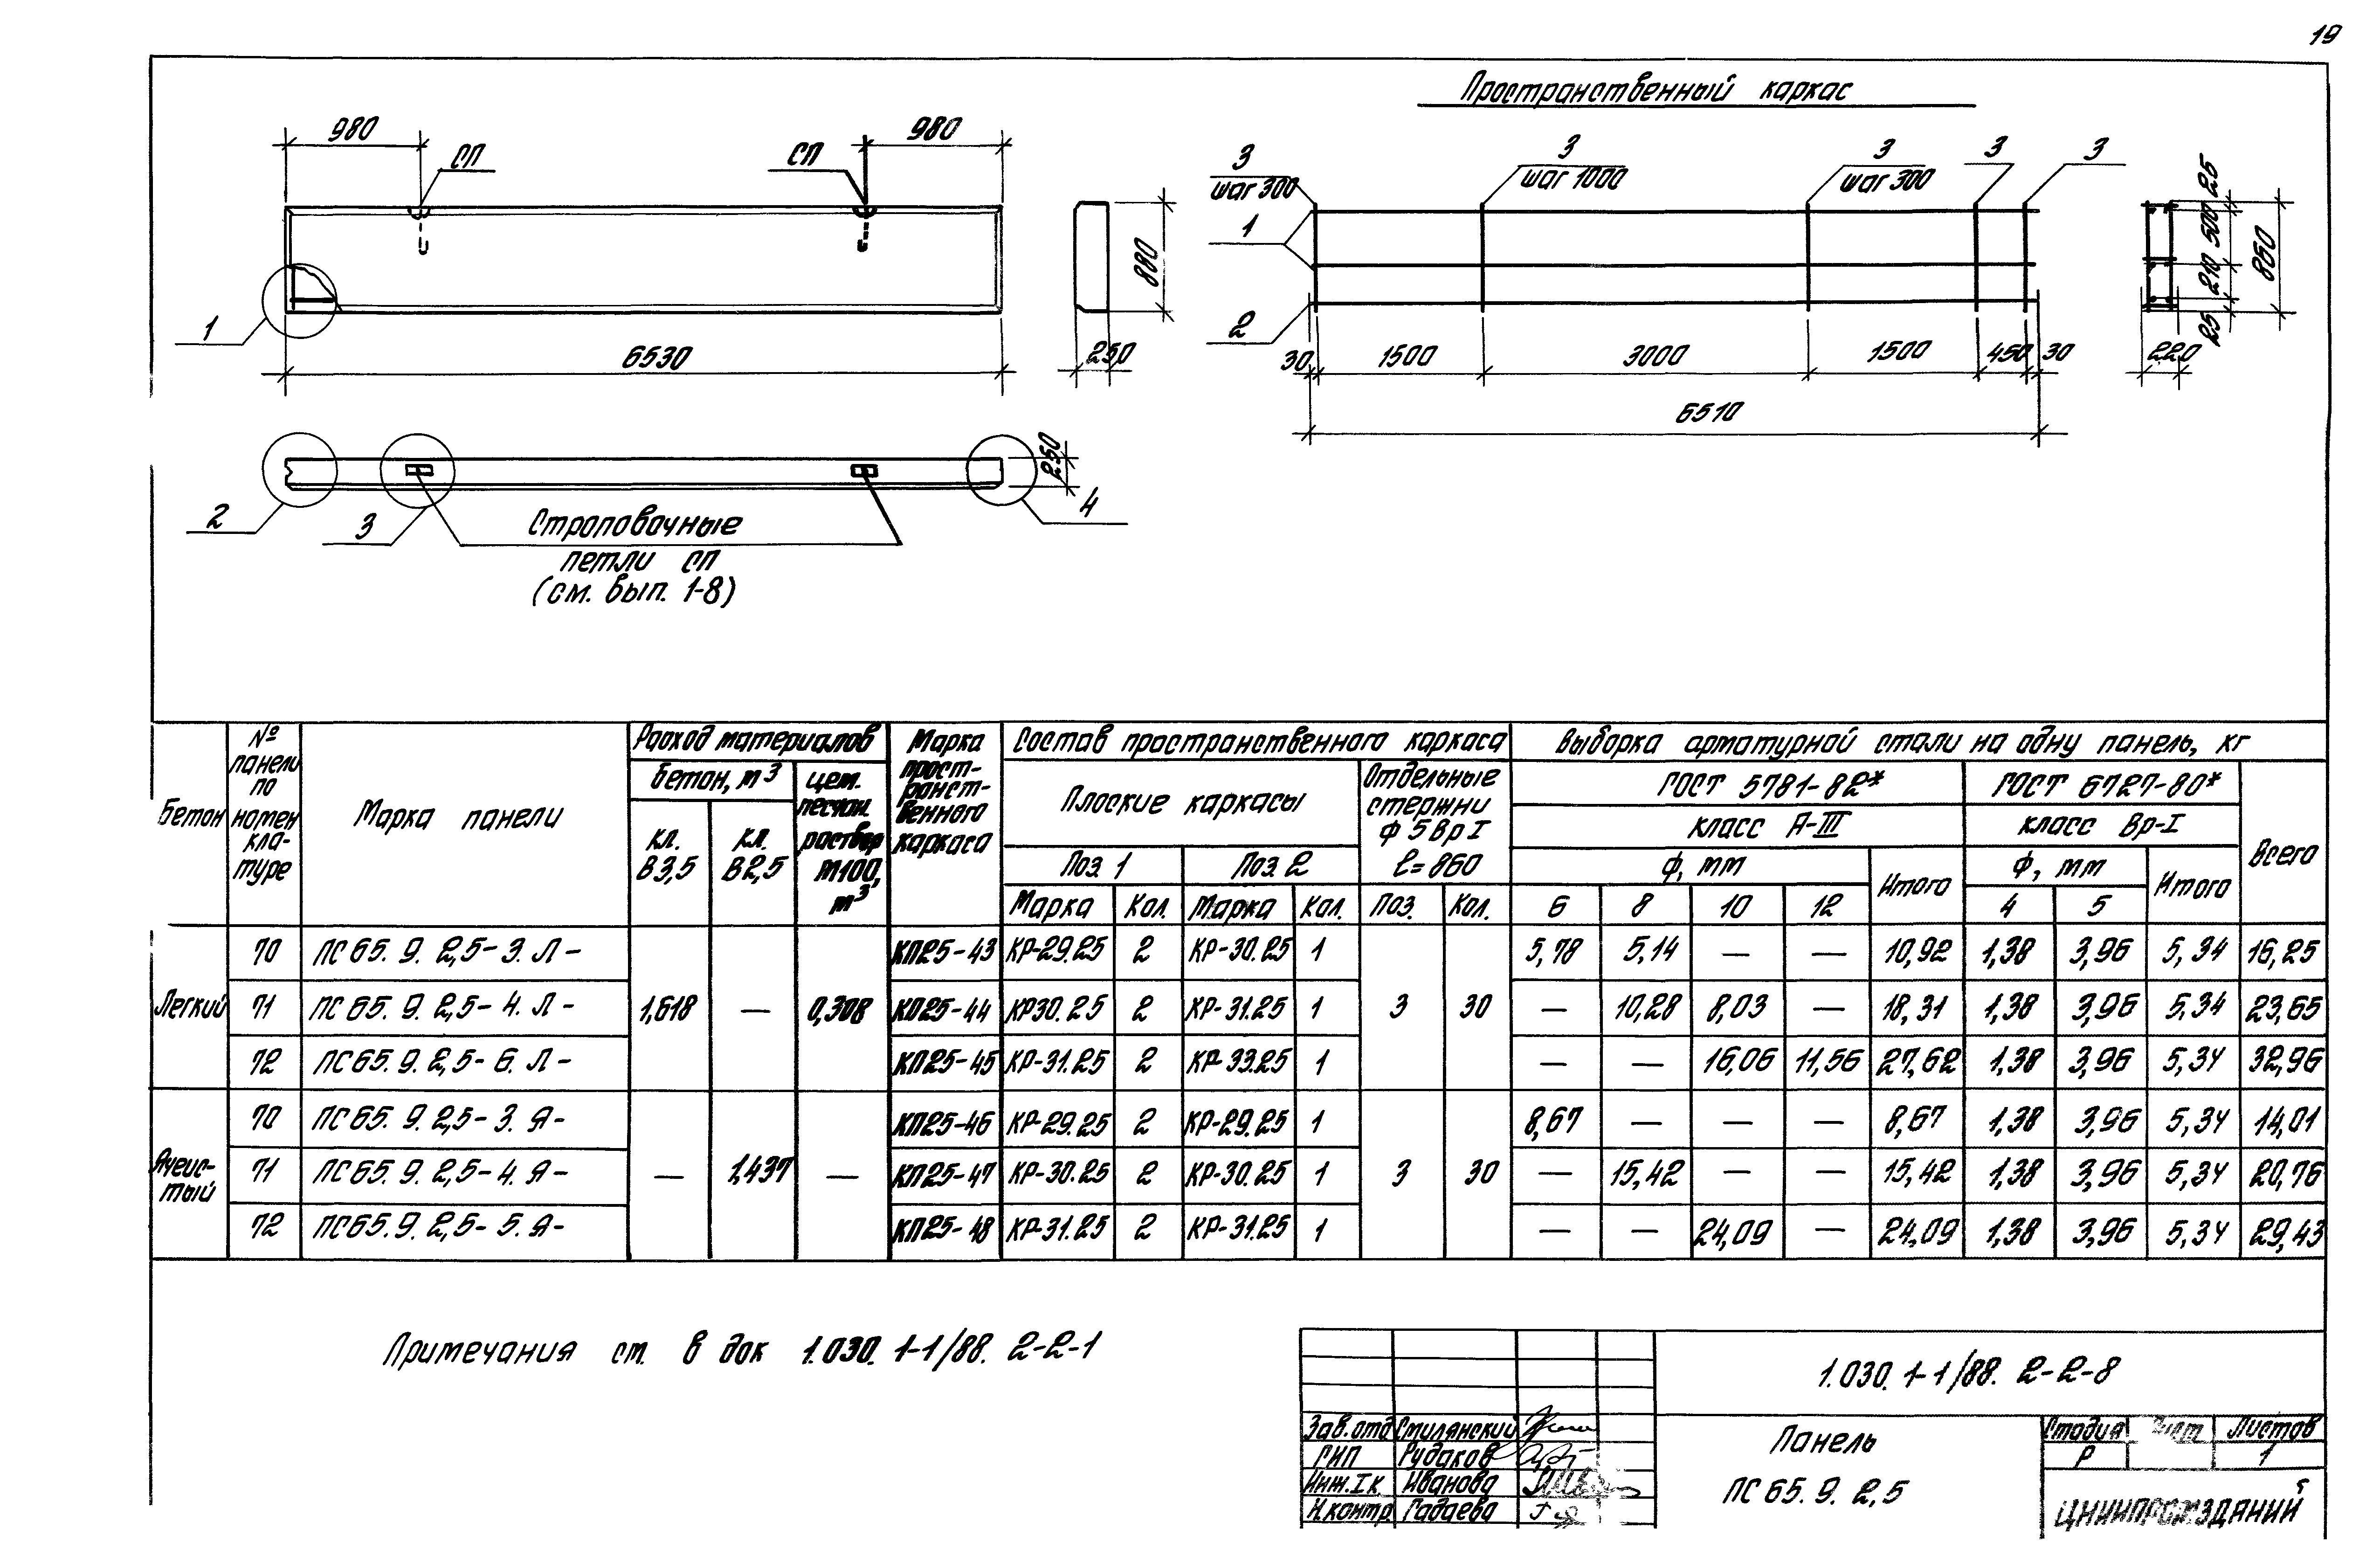 19
Пространственный каркас
980
980
СП
СП
880
1
6530
250
3
шаг 300
3
шаг 1000
3
шаг 300
3
3
1
2
30
1500
3000
1500
450
30
6510
25
500
210
25
850
220
250
2
3
4
Строповочные
петли СП
(см. вып. 1-8)
Бетон
№ панели по номенклатуре
Марка панели
Расход материалов
Бетон, м³
кл. В3,5
кл. В2,5
цем. песчан. раствор М100, м³
Марка пространственного каркаса
Состав пространственного каркаса
Плоские каркасы
Поз. 1
Поз. 2
Отдельные стержни ф 5 Вр I ℓ=860
Марка Кол. Марка Кол. Поз. Кол.
Выборка арматурной стали на одну панель, кг
ГОСТ 5781-82*
ГОСТ 6727-80*
Всего
класс А-III
класс Вр-I
ф, мм
Итого
ф, мм
Итого
6 8 10 12 4 5
Легкий
70 ПС 65. 9. 2,5- 3. Л- КП25-43 КР-29.25 2 КР-30.25 1 5,78 5,14 — — 10,92 1,38 3,96 5,34 16,25
71 ПС 65. 9. 2,5- 4. Л- 1,618 — 0,308 КП25-44 КР30.25 2 КР-31.25 1 3 30 — 10,28 8,03 — 18,31 1,38 3,96 5,34 23,65
72 ПС 65. 9. 2,5- 6. Л- КП25-45 КР-31.25 2 КР-33.25 1 — — 16,06 11,56 27,62 1,38 3,96 5,34 32,96
Ячеис-
тый
70 ПС 65. 9. 2,5- 3. Я- КП25-46 КР-29.25 2 КР-29.25 1 8,67 — — — 8,67 1,38 3,96 5,34 14,01
71 ПС 65. 9. 2,5- 4. Я- — 1,437 — КП25-47 КР-30.25 2 КР-30.25 1 3 30 — 15,42 — — 15,42 1,38 3,96 5,34 20,76
72 ПС 65. 9. 2,5- 5. Я- КП25-48 КР-31.25 2 КР-31.25 1 — — 24,09 — 24,09 1,38 3,96 5,34 29,43
Примечания см. в док 1.030. 1-1/88. 2-2-1
1.030. 1-1/88. 2-2-8
Зав. отд Смилянский
ГИП Рудаков
Инж. I к Иванова
Н. контр Гадаева
Панель
ПС 65. 9. 2,5
Стадия Лист Листов
Р 1
ЦНИИПРОМЗДАНИЙ